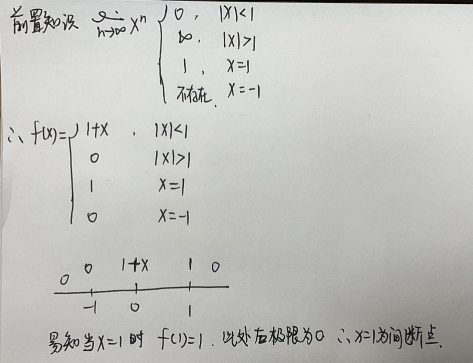 前置知识 lim n→∞ xⁿ { 0, |x|<1
∞, |x|>1
1, x=1
不存在. x=-1
∴ f(x)= { 1+x , |x|<1
0 |x|>1
1 x=1
0 x=-1
0 0 1+x 1 0
-1 0 1
易知当x=1时 f(1)=1. 此处右极限为0 ∴x=1为间断点.